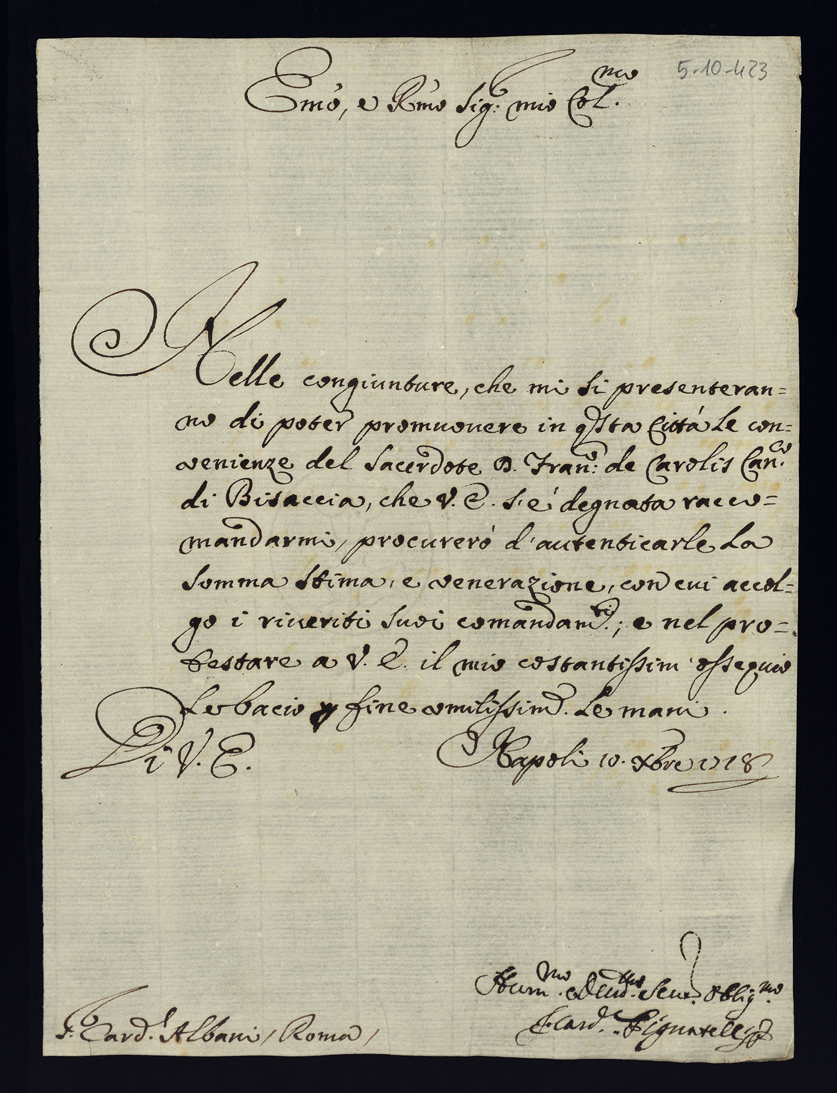 5-10-423
Emo, e Rmo Sig.r mio Col.mo
Nelle congiunture, che mi si presenteran=
no di poter promuovere in qsta Città le con=
venienze del Sacerdote D. Fran.co de Carolis Can.co
di Bisaccia, che V. E. s'è degnata racco=
mandarmi, procurerò d'autenticarle la
somma stima, e venerazione, con cui accol=
go i riveriti suoi comandam.ti; e nel pro=
testare a V. E. il mio costantissim' ossequio
le bacio p fine umilissim.e le mani.
Di V. E. Napoli 10. Xbre 1718
Hum.mo Devd.mo Ser. Oblig.mo
S.r Card.l Albani / Roma / F. Card. Pignatelli